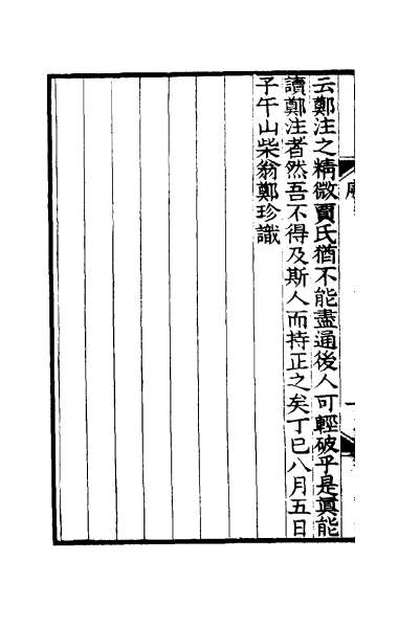 云鄭注之精微賈氏猶不能盡通後人可輕破乎是眞能
讀鄭注者然吾不得及斯人而持正之矣丁巳八月五日
子午山柴翁鄭珍識